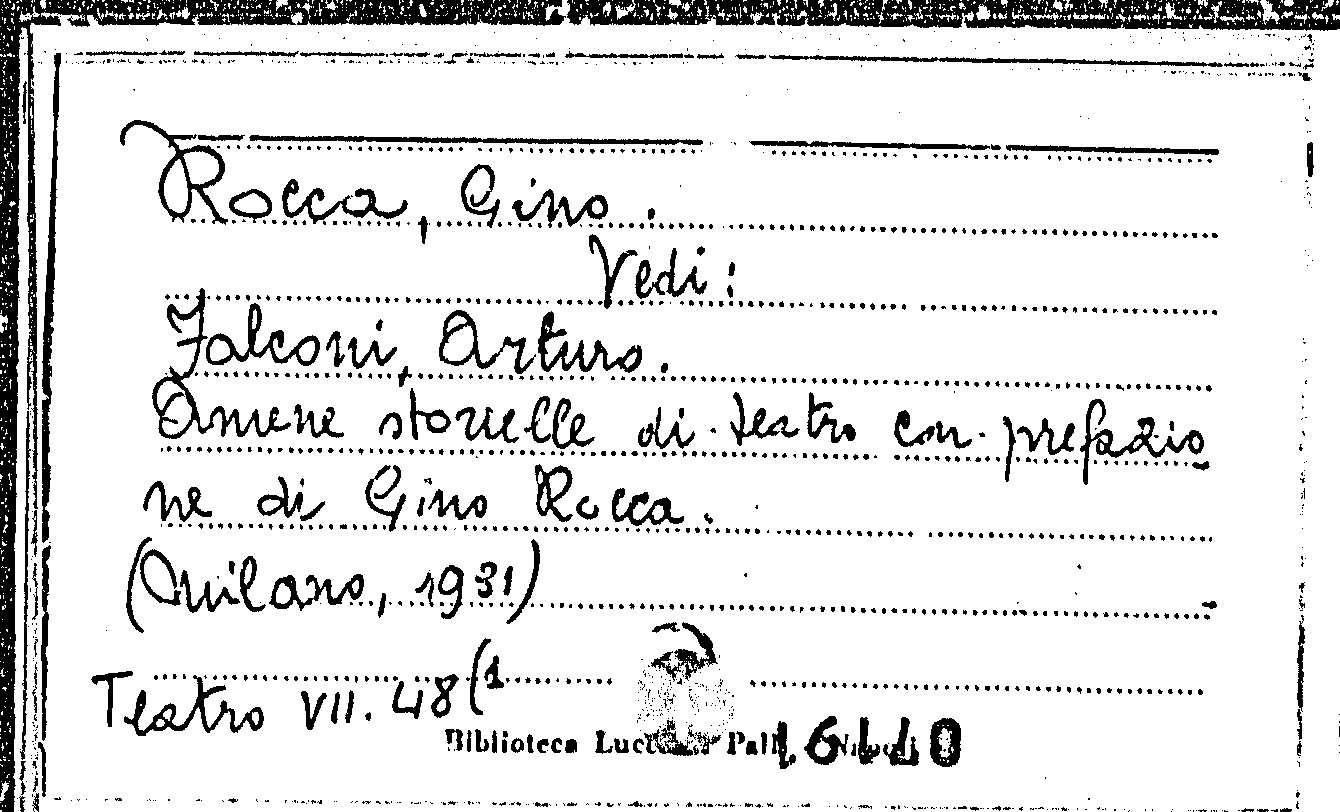 Rocca, Gino.
Vedi:
Falconi, Arturo.
Amene storielle di teatro con prefazio
ne di Gino Rocca.
(Milano, 1931)
Teatro VII. 48(1
Biblioteca